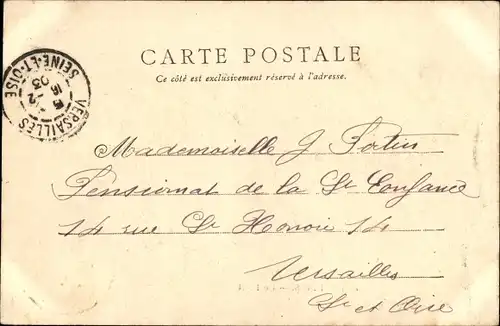 CARTE POSTALE
Ce côté est exclusivement réservé à l'adresse.
VERSAILLES
SEINE-ET-OISE
16
12
03
Mademoiselle J Fortin
Pensionnat de la Ste Enfance
14 rue St Honoré 14
Versailles
Se et Oise